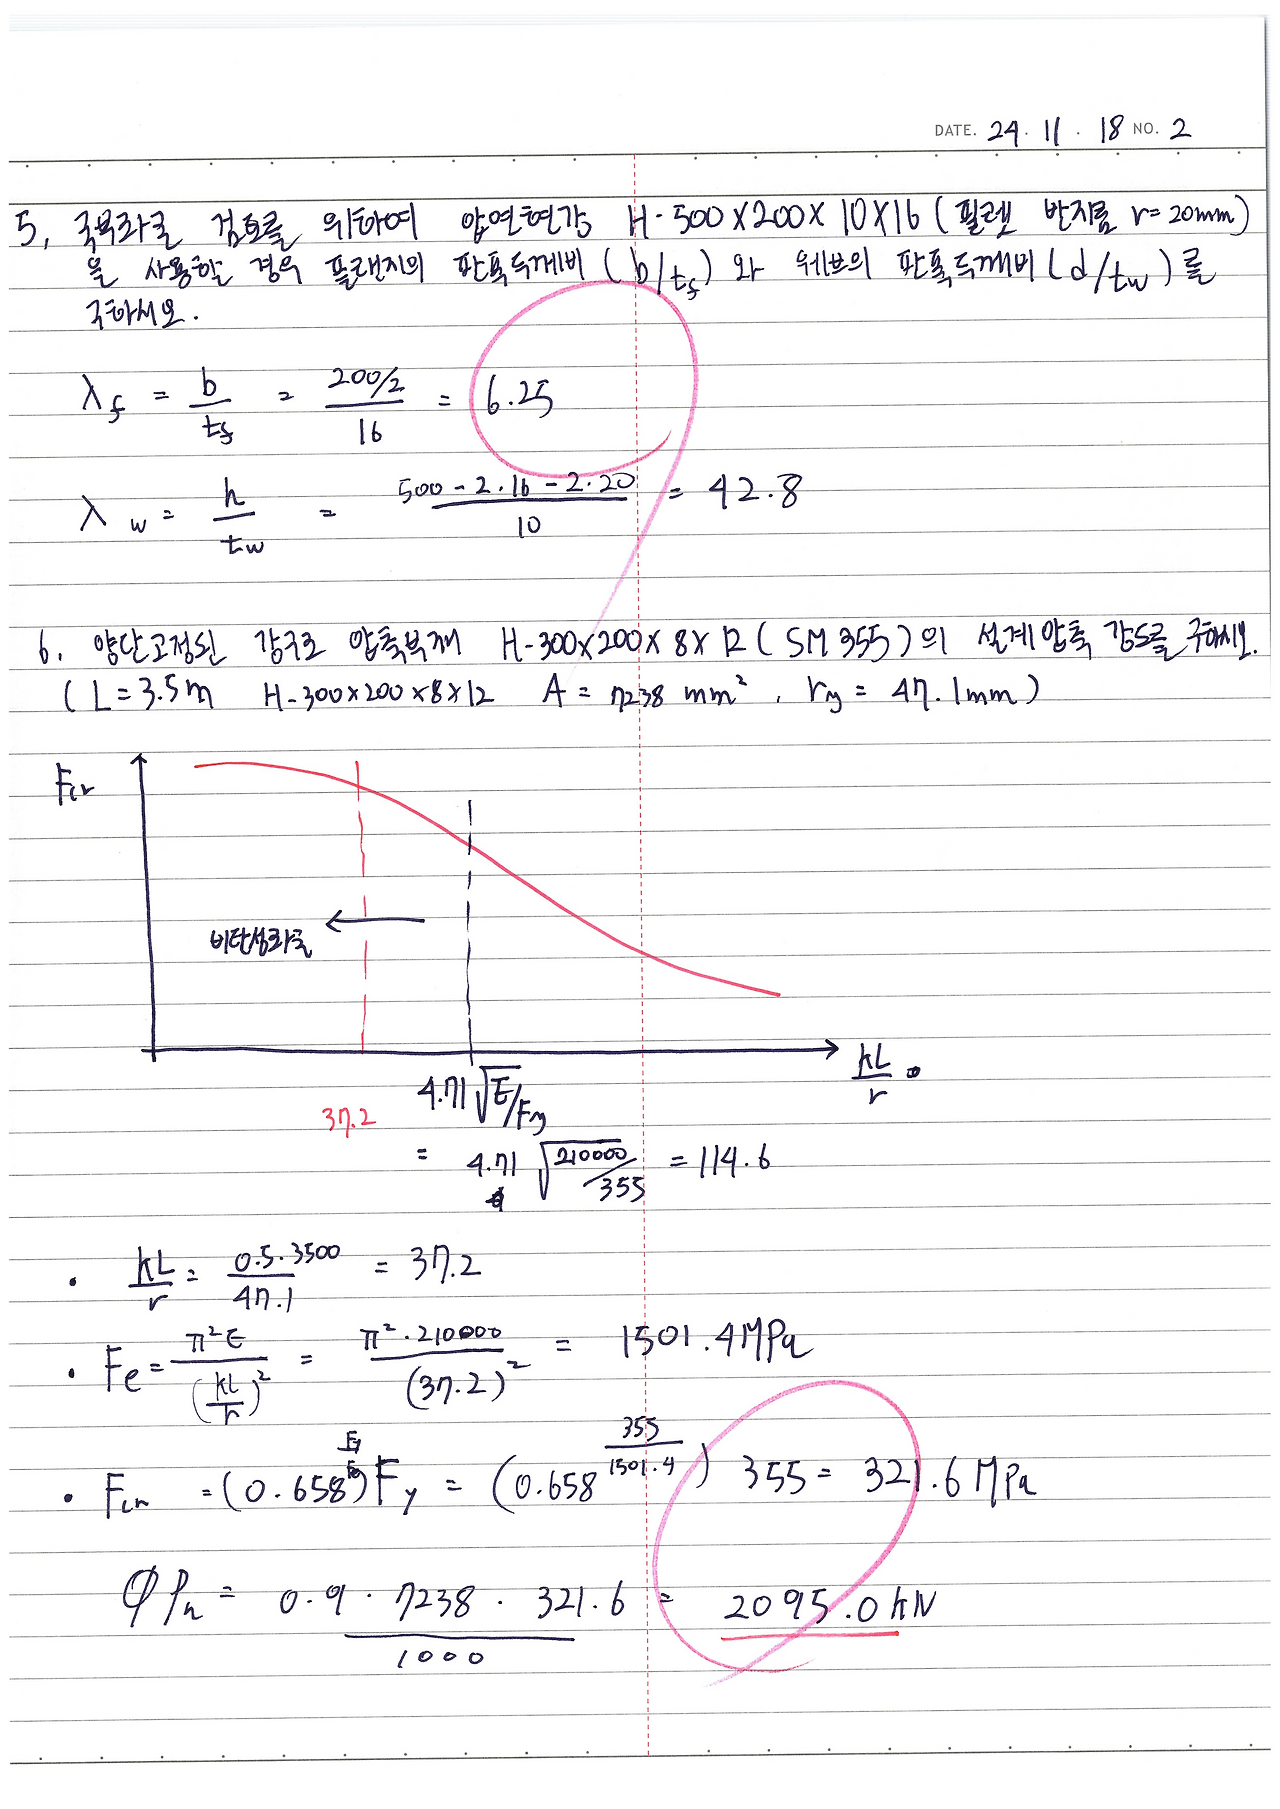 DATE. 24. 11. 18 NO. 2
5, 국부좌굴 검토를 위하여 압연형강 H-500×200×10×16 (필렛 반지름 r=20mm)
을 사용할 경우 플랜지의 판폭두께비 (b/tf) 와 웨브의 판폭두께비 (d/tw) 를
구하시오.
λf = b/tf = 200/2 / 16 = 6.25
λw = h/tw = 500-2·16-2·20 / 10 = 42.8
6. 양단고정된 강구조 압축부재 H-300×200×8×12 (SM355)의 설계압축 강도를 구하시오.
(L=3.5m H-300×200×8×12 A = 7238 mm², ry = 47.1mm)
Fcr
비탄성좌굴
kL/r
37.2
4.71√E/Fy
= 4.71 √210000/355 = 114.6
· kL/r = 0.5·3500 / 47.1 = 37.2
· Fe = π²E / (kL/r)² = π²·210000 / (37.2)² = 1501.4MPa
· Fcr = (0.658^Fy/Fe) Fy = (0.658^355/1501.4) 355 = 321.6 MPa
φPn = 0.9 · 7238 · 321.6 / 1000 = 2095.0kN